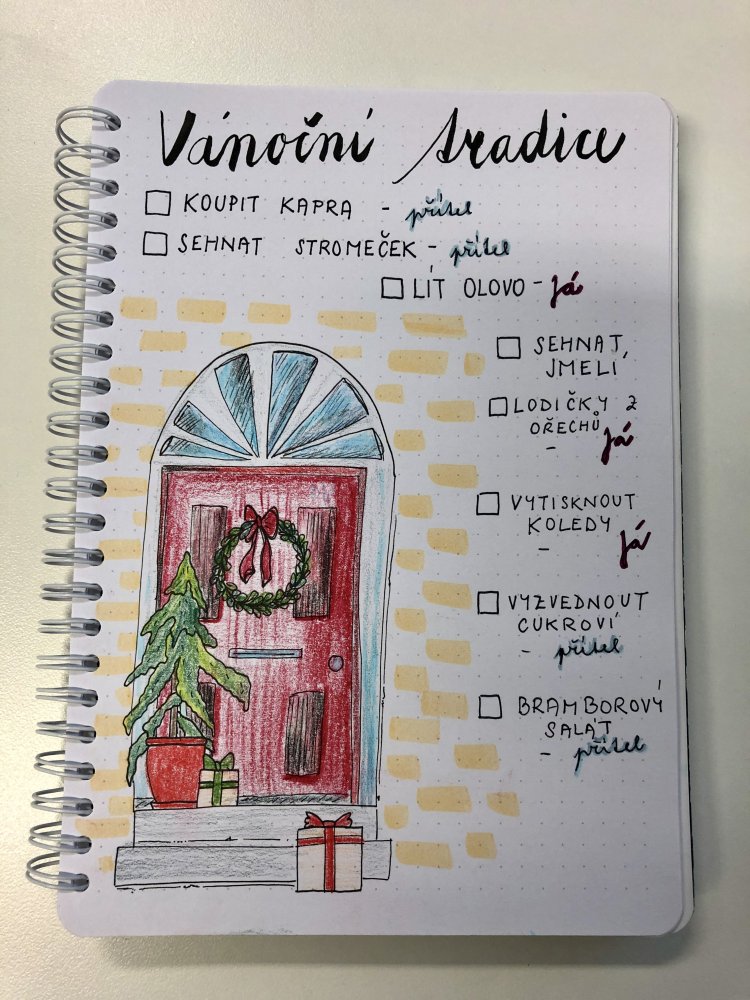 Vánoční tradice
KOUPIT KAPRA - přítel
SEHNAT STROMEČEK - přítel
LÍT OLOVO - Já
SEHNAT
JMELÍ
LODIČKY Z
OŘECHŮ
- Já
VYTISKNOUT
KOLEDY
- Já
VYZVEDNOUT
CUKROVÍ
- přítel
BRAMBOROVÝ
SALÁT
- přítel